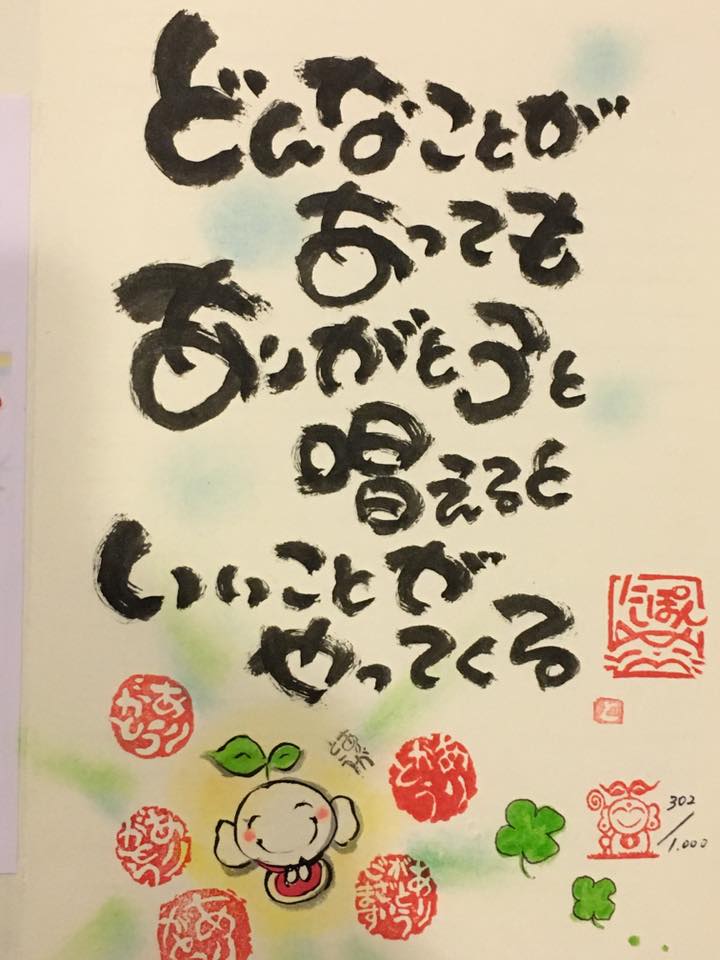 どんなことが
あっても
ありがとうと
唱えると
いいことが
やってくる
にしぽん
と
ありがとう
ありがとう
ありがとう
ありがとう
ありがとうございます
ありがとう
302/1.000